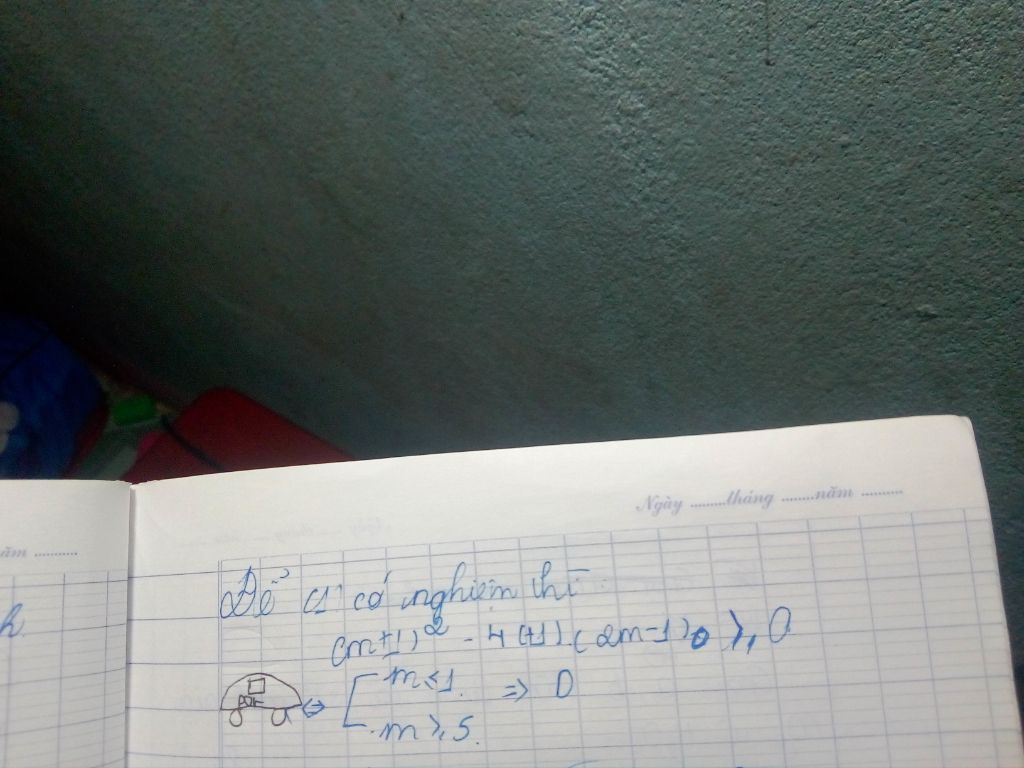 Ngày ........tháng ........năm ..........
ăm ..........
Để (1) có nghiệm thì
h
(m+1)² - 4(+1).(2m-1) ≥ 0
⇔ [ m ≤ 1. ⇒ D
m ≥ 5.